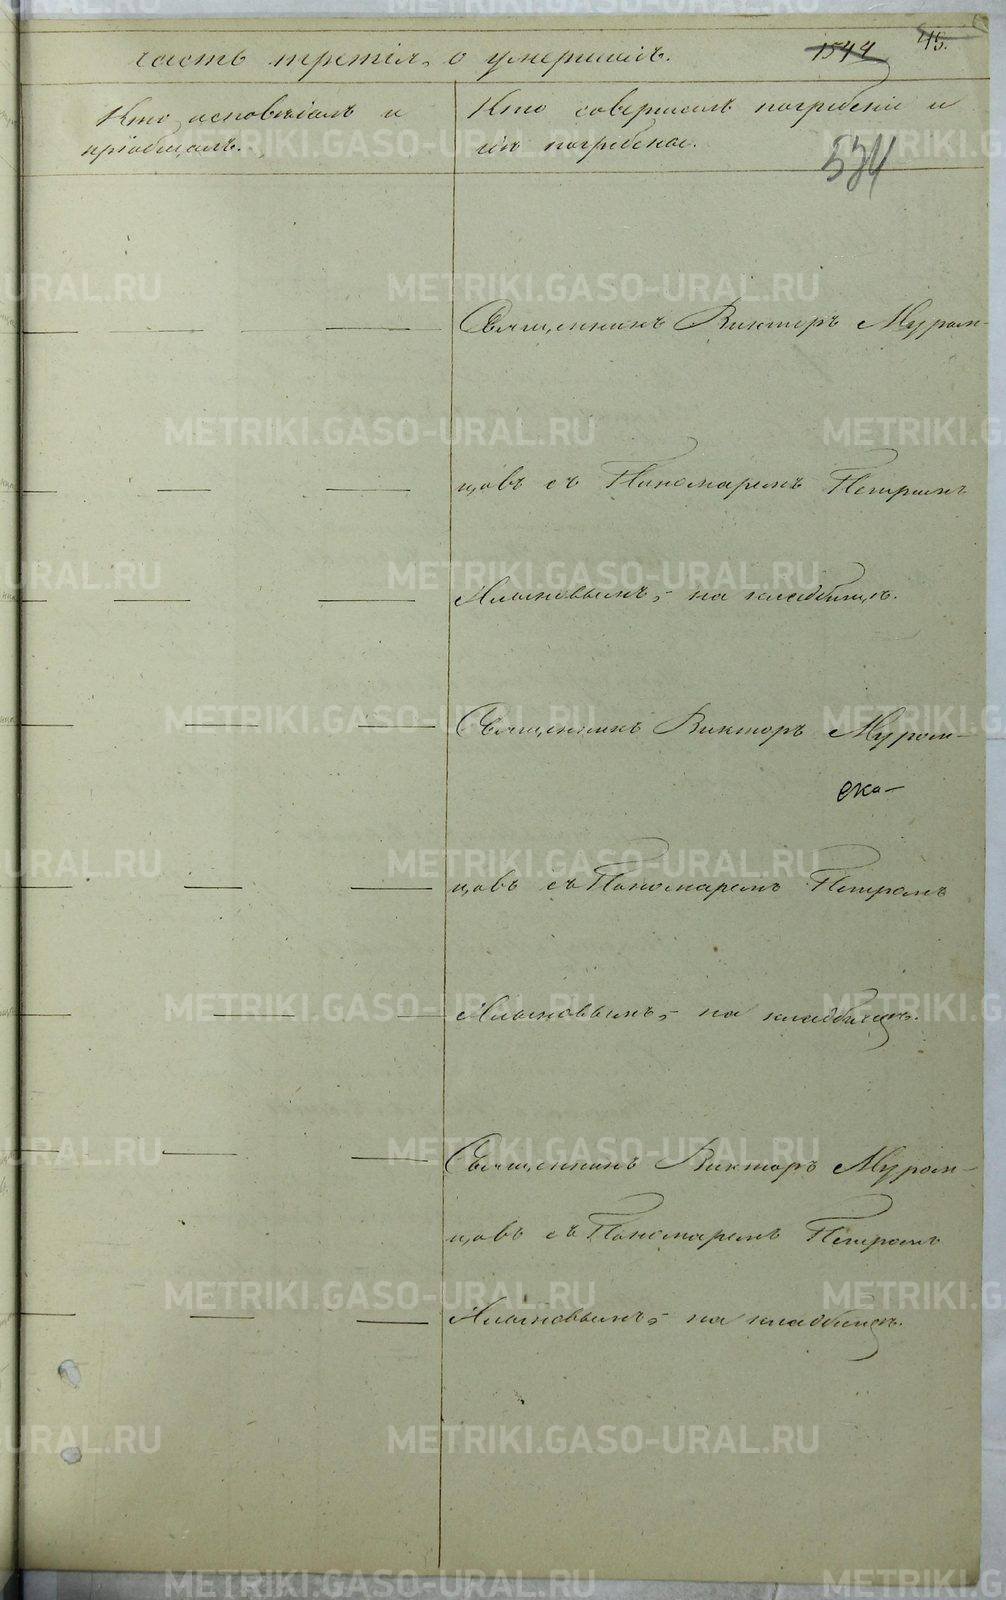 часть третія, о умершихъ. 1544 45.
Кто исповѣдалъ и
пріобщалъ.
Кто совершалъ погребеніе и
гдѣ погребены.
534
Священникъ Викторъ Муром-
цовъ съ Пономаремъ Петромъ
на кладбищѣ.
Священникъ Викторъ Муром-
цовъ съ Пономаремъ Петромъ
на кладбищѣ.
Священникъ Викторъ Муром-
цовъ съ Пономаремъ Петромъ
на кладбищѣ.
METRIKI.GASO-URAL.RU